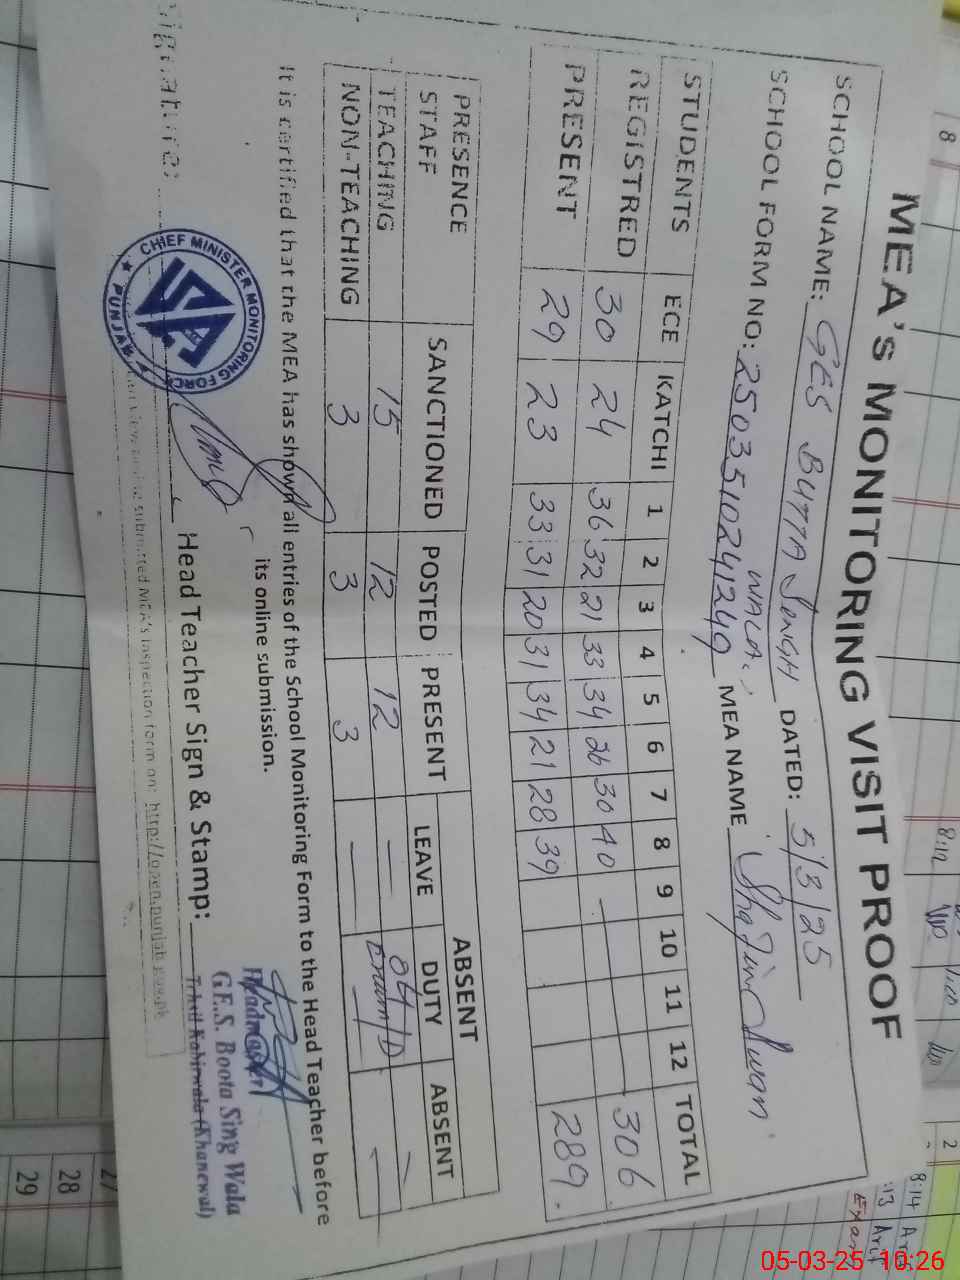 MEA's MONITORING VISIT PROOF
SCHOOL NAME: GES BUTTA Singh WALA. DATED: 5/3/25
SCHOOL FORM NO: 2503510241249 MEA NAME Awan
STUDENTS ECE KATCHI 1 2 3 4 5 6 7 8 9 10 11 12 TOTAL
REGISTRED 30 24 36 32 21 33 34 26 30 40 — 306
PRESENT 29 23 33 31 20 31 34 21 28 39 289.
PRESENCE ABSENT
STAFF SANCTIONED POSTED PRESENT LEAVE DUTY ABSENT
TEACHING 15 12 12 — 04 Exam/D —
NON-TEACHING 3 3 3 — — —
It is certified that the MEA has shown all entries of the School Monitoring Form to the Head Teacher before
its online submission.
Signature:
CHIEF MINISTER MONITORING FORCE
PUNJAB
Head Teacher Sign & Stamp:
Headmaster
GE.S. Boota Sing Wala
Tehsil Kabirwala (Khanewal)
view online submitted MEA's inspection form on: http://open.punjab.gov.pk
8
8:12
2
8:14
:13 Arif
Exam
27
28
29
05-03-25 10:26